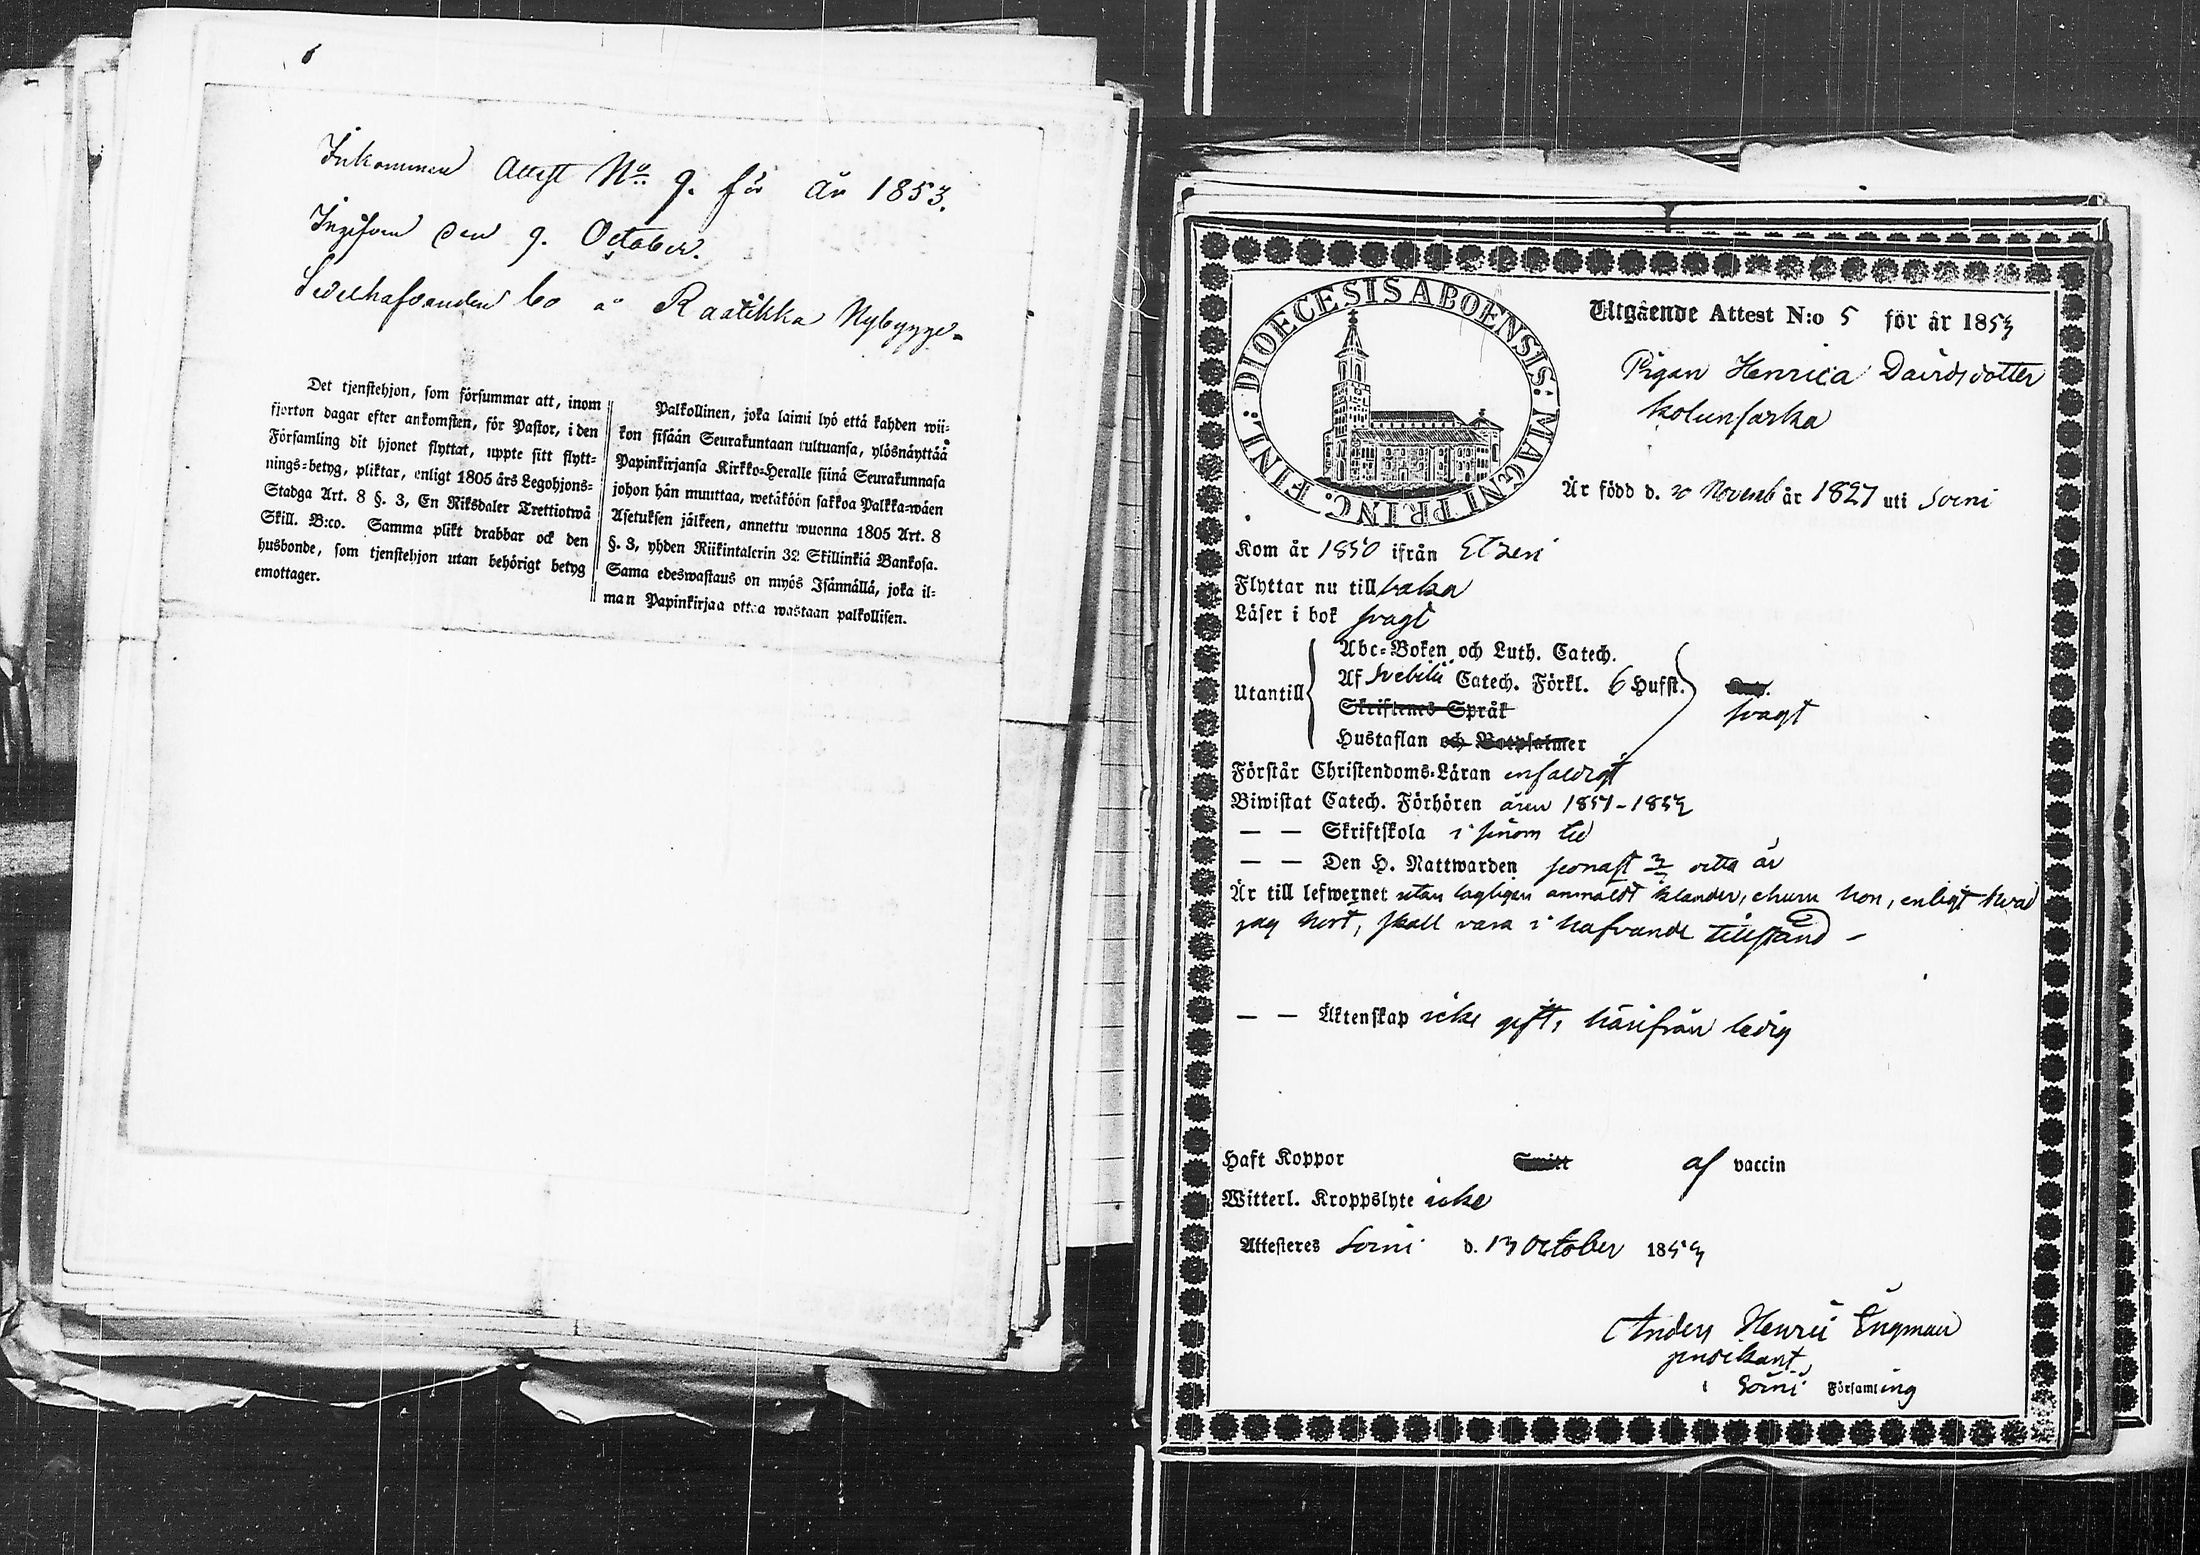 Inkommen Attest No 9. för År 1853.
Ingifven den 9. October.
Sedelhafvanden bo å Raatikka Nybygge.
Det tjenstehjon, som försummar att, inom
fjorton dagar efter ankomsten, för Pastor, i den
Församling dit hjonet flyttat, uppte sitt flytt-
nings-betyg, pliktar, enligt 1805 års Legohjons-
Stadga Art. 8 §. 3, En Riksdaler Trettiotwå
Skill. B:co. Samma plikt drabbar ock den
husbonde, som tjenstehjon utan behörigt betyg
emottager.
Palkollinen, joka laimi lyö että kahden wii-
kon sisään Seurakuntaan tultuansa, ylösnäyttää
Papinkirjansa Kirkko-Heralle siinä Seurakunnasa
johon hän muuttaa, wetäköön sakkoa Palkka-wäen
Asetuksen jälkeen, annettu wuonna 1805 Art. 8
§. 3, yhden Riikintalerin 32 Skillinkiä Bankosa.
Sama edeswastaus on myös Isännällä, joka il-
man Papinkirjaa ottaa wastaan palkollisen.
DIOECESIS ABOENSIS: MAGNI PRINC. FINL:
Utgående Attest N:o 5 för år 1853
Pigan Henrica Davidsdotter
Kolunsarka
Är född d. 20 Novemb år 1827 uti Soini
Kom år 1850 ifrån Etzeri
Flyttar nu till baka
Läser i bok svagt
Utantill
Abc-Boken och Luth. Catech.
Af Svebilii Catech. Förkl. 6 Hufst.
Skriftenes Språk
Hustaflan och Botpsalmer
svagt
Förstår Christendoms-Läran enfaldigt
Biwistat Catech. Förhören åren 1851-1853
— — Skriftskola i sinom tid
— — Den H. Nattwarden senast detta år
Är till lefwernet utan lagligen anmäldt klander, ehuru hon, enligt hvad
jag hört, skall vara i hafvande tillstånd -
— — Äktenskap icke gift, härifrån ledig
Haft Koppor af vaccin
Witterl. Kroppslyte icke
Attesteres Soini d. 13 October 1853
Anders Henric Engman
predikant
i Soini Församling